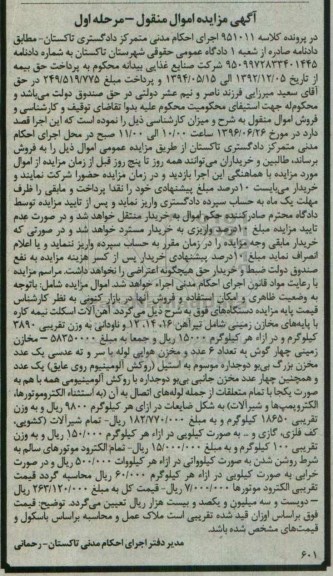 آگهی مزایده اموال منقول - مرحله اول
در پرونده کلاسه ۹۵۱۰۱۱ اجرای احکام مدنی متمرکز دادگستری تاکستان- مطابق
دادنامه صادره از شعبه ۱ دادگاه عمومی حقوقی شهرستان تاکستان به شماره دادنامه
۹۵۰۹۹۷۲۸۳۳۴۰۱۴۴۵ شرکت صنایع غذایی بیدانه محکوم به پرداخت حق بیمه
از تاریخ ۱۳۹۲/۱۲/۰۵ الی ۱۳۹۴/۰۵/۱۵ و پرداخت مبلغ ۲۴۹/۵۱۹/۷۷۵ در حق
آقای سعید میرزایی فرزند ناصر و نیم عشر دولتی در حق صندوق دولت می‌باشد و
محکوم‌له جهت استیفای محکومیت محکوم علیه بدوا تقاضای توقیف و کارشناسی و
فروش اموال منقول به شرح و میزان کارشناسی ذیل را نموده است که این اجرا قصد
دارد در مورخ ۱۳۹۶/۰۶/۲۶ ساعت ۱۰/۰۰ الی ۱۱/۰۰ صبح در محل اجرای احکام
مدنی متمرکز دادگستری تاکستان از طریق مزایده عمومی اموال ذیل را به فروش
برساند، طالبین و خریداران می‌توانند همه روز تا پنج روز قبل از زمان مزایده از اموال
مورد مزایده با هماهنگی این اجرا بازدید و در زمان مزایده حضورا شرکت نمایند و
خریدار می‌بایست ۱۰درصد مبلغ پیشنهادی خود را نقدا پرداخت و مابقی را ظرف
مهلت یک ماه به حساب سپرده دادگستری واریز نماید و پس از تایید مزایده توسط
دادگاه محترم صادرکننده حکم اموال به خریدار منتقل خواهد شد و در صورت عدم
تایید مزایده مبلغ ۱۰درصد واریزی به خریدار مسترد خواهد شد و در صورتی که
خریدار مابقی وجه مزایده را در زمان مقرر به حساب سپرده واریز ننماید و یا اعلام
انصراف نماید مبلغ ۱۰درصد پیشنهادی خریدار پس از کسر هزینه مزایده به نفع
صندوق دولت ضبط و خریدار حق هیچگونه اعتراضی را نخواهد داشت. مراسم مزایده
با رعایت مواد قانون اجرای احکام مدنی اجراء خواهد شد. اموال مزایده شامل: باتوجه
به وضعیت ظاهری و امکان استفاده و فروش آنها در بازار کنونی به نظر کارشناس
قیمت پایه مزایده دستگاه‌های فوق به شرح ذیل می‌گردد. آهن‌آلات اسکلت نیمه کاره
با پایه‌های مخازن زمینی شامل تیرآهن ۱۶، ۱۴، ۱۲ و ناودانی به وزن تقریبی ۳۸۹۰
کیلوگرم و در ازاء هر کیلوگرم ۱۵۰۰۰ ریال و جمعا به مبلغ ۵۸۳۵۰۰۰۰ - مخازن
زمینی چهار گوش به تعداد ۶ عدد و مخزن هوایی لوله با سر و ته عدسی یک عدد
مخزن بزرگ بی‌بو دوجداره موسوم به استیل (روکش آلومینیوم روی عایق) یک عدد
و همچنین چهار عدد مخزن جانبی بی‌بو دوجداره با روکش آلومینیومی همه با هم به
صورت یکجا با تمام متعلقات از جمله لوله‌های اتصال به آن (به استثناء الکتروموتورها،
الکتروپمپ‌ها و شیرآلات) به شکل ضایعات در ازای هر کیلوگرم ۹۸۰۰ ریال و به وزن
تقریبی ۱۸۶۵۰ کیلوگرم و به مبلغ ۱۸۲/۷۷۰/۰۰۰ ریال- تمام شیرآلات (کشویی،
کف فلزی، گازی و ... به صورت کیلویی در ازاء هر کیلوگرم ۱۵۰/۰۰۰ ریال و به وزن
تقریبی ۱۰۰ کیلوگرم و به مبلغ ۱۵/۰۰۰/۰۰۰ ریال- تمام الکترو موتورهای سالم به
شرط روشن شدن به صورت کیلوواتی در ازاء هر کیلووات ۵۰۰/۰۰۰ ریال و در صورت
خرابی به صورت کیلویی در ازاء هر کیلوگرم ۶۰/۰۰۰ ریال محاسبه گردد قیمت
تقریبی الکترو موتورها ۷/۰۰۰/۰۰۰ ریال- قیمت کل به مبلغ ۲۶۳/۱۲۰/۰۰۰ ریال
- دویست و سه میلیون و یکصد و بیست هزار ریال تعیین می‌گردد. توضیح: قیمت
فوق براساس اوزان قید شده تقریبی است ملاک عمل و محاسبه براساس باسکول و
قیمت‌های مشخص شده باشد.
مدیر دفتر اجرای احکام مدنی تاکستان- رحمانی
۶۰۱